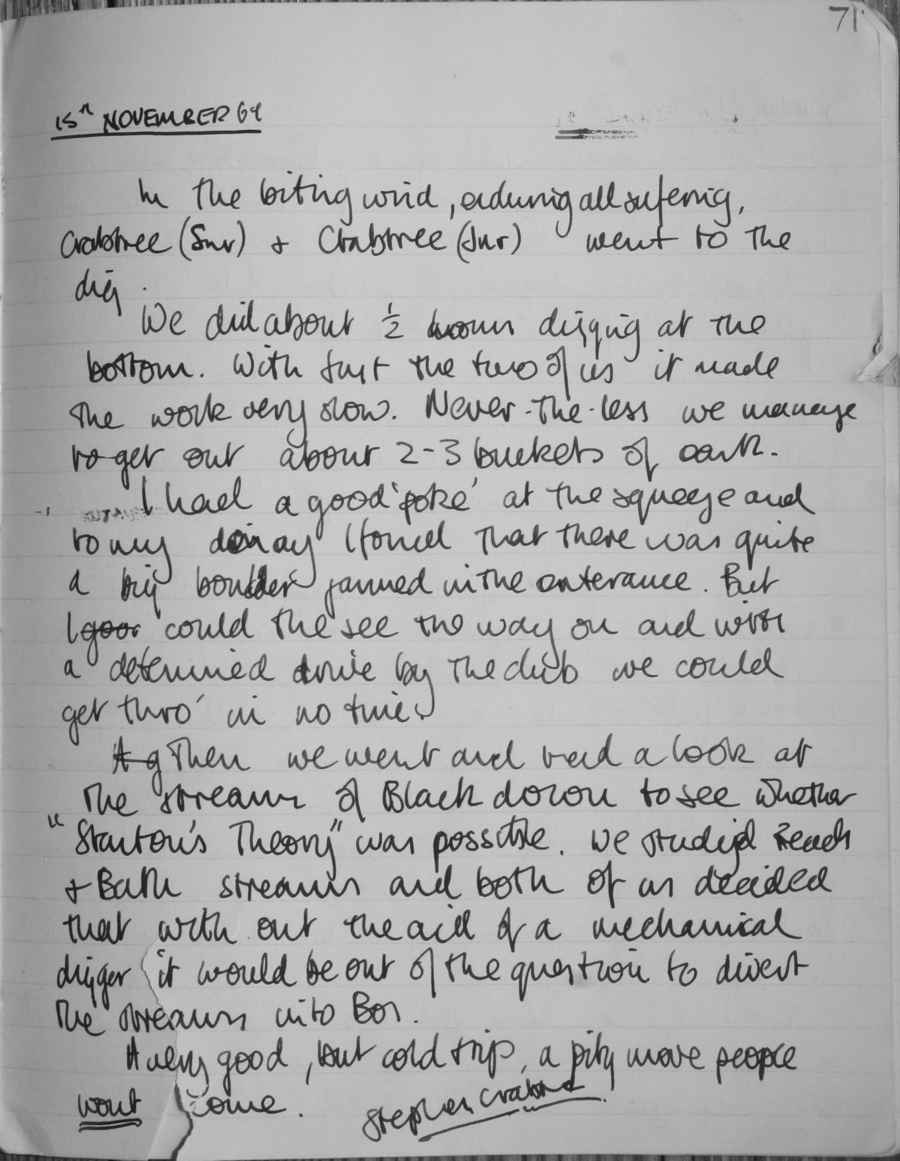 71
15th NOVEMBER 69
In the biting wind, enduring all suffering,
Crabtree (Snr) & Crabtree (Jnr) went to the
dig.
We did about ½ hour digging at the
bottom. With just the two of us it made
the work very slow. Never-the-less we manage
to get out about 2-3 buckets of earth.
I had a good 'poke' at the squeeze and
to my I found that there was quite
a big boulder jammed in the enterance. But
I goor could the see the way on and with
a determined drive by the club we could
get thro' in no time.
A g Then we went and had a look at
the streams of Black down to see whether
"Stanton's Theory" was possible. We studied
& Bath streams and both of us decided
that with out the aid of a mechanical
digger it would be out of the question to divert
the streams into Bos.
A very good, but cold trip, a pity more people
wont come. Stephen Crabtree